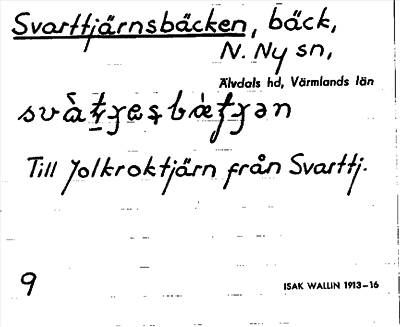 Svarttjärnsbäcken, bäck,
N. Ny sn,
Älvdals hd, Värmlands län
Till Jolkroktjärn från Svarttj.
9
ISAK WALLIN 1913–16